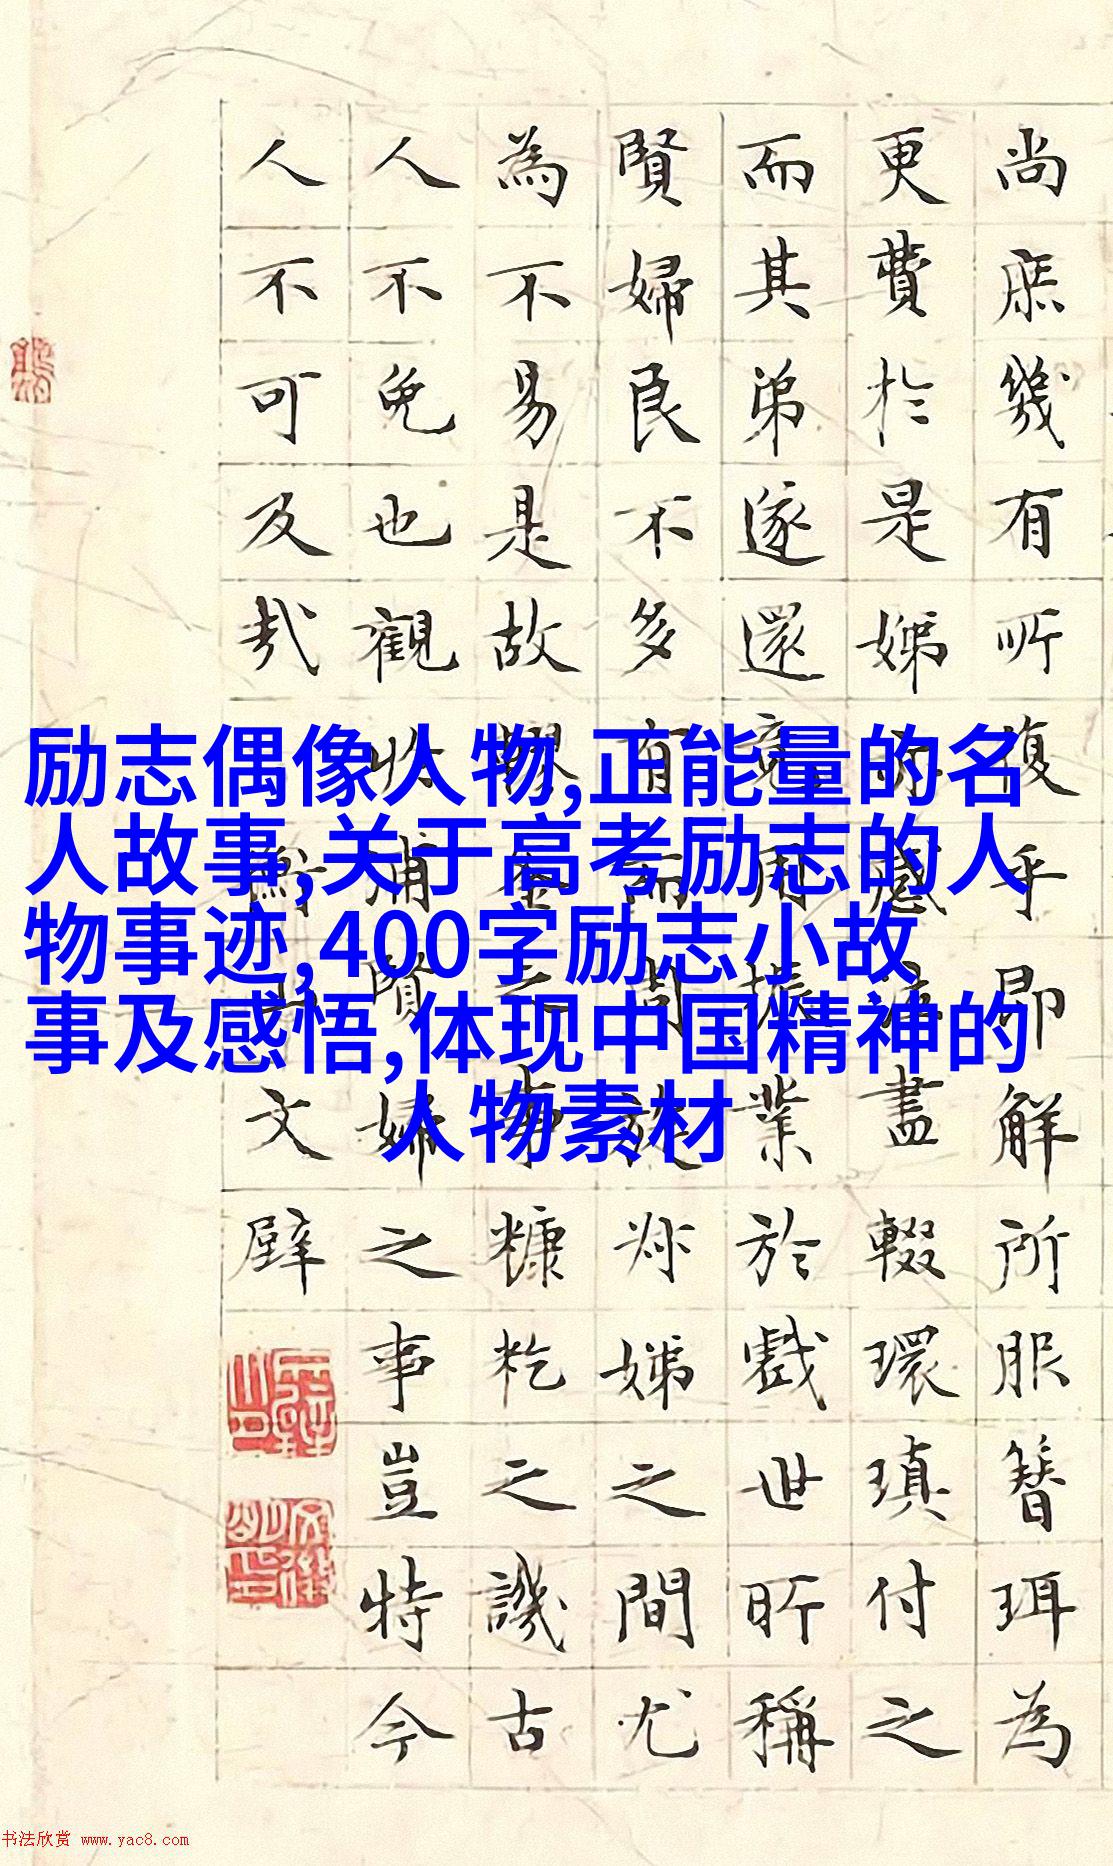 励志偶像人物,正能量的名
人故事,关于高考励志的人
物事迹,400字励志小故
事及感悟,体现中国精神的
人物素材
尚庶幾有所復乎即解所服簪珥為
更費於是娣感盡輟環瑱付之
而其弟遂還用振業於戲世所稱
賢婦良不多有而之間尤
為不易是故之事糠籺之譏古
人不免也觀婦之事豈特今
人不可及哉文壁
书法欣赏 www.yac8.com